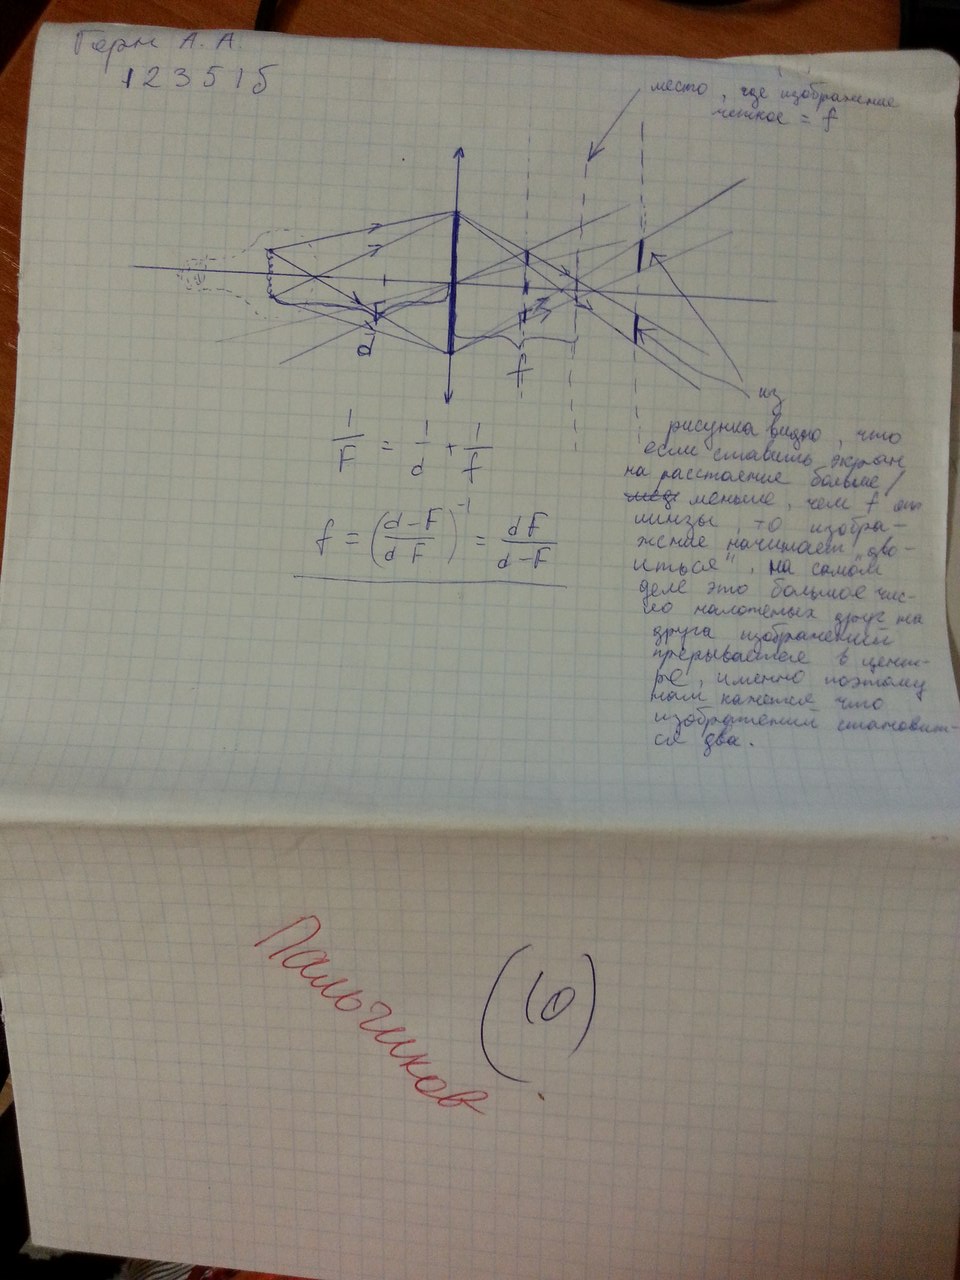 Герн А. А.
123515
место, где изображение
четкое = f
F
d
f
из
1/F = 1/d + 1/f
f = ((d-F)/(d F))^-1 = dF/(d-F)
рисунка видно, что
если ставить экран
на расстояние больше/
меньше, чем f от
линзы, то изобра-
жение начинает „дво-
иться", на самом
деле это большое чис-
ло наложеных друг на
друга изображений
прерывается в цент-
ре, именно поэтому
нам кажется что
изображений становит-
ся два.
Пальчиков
(10)